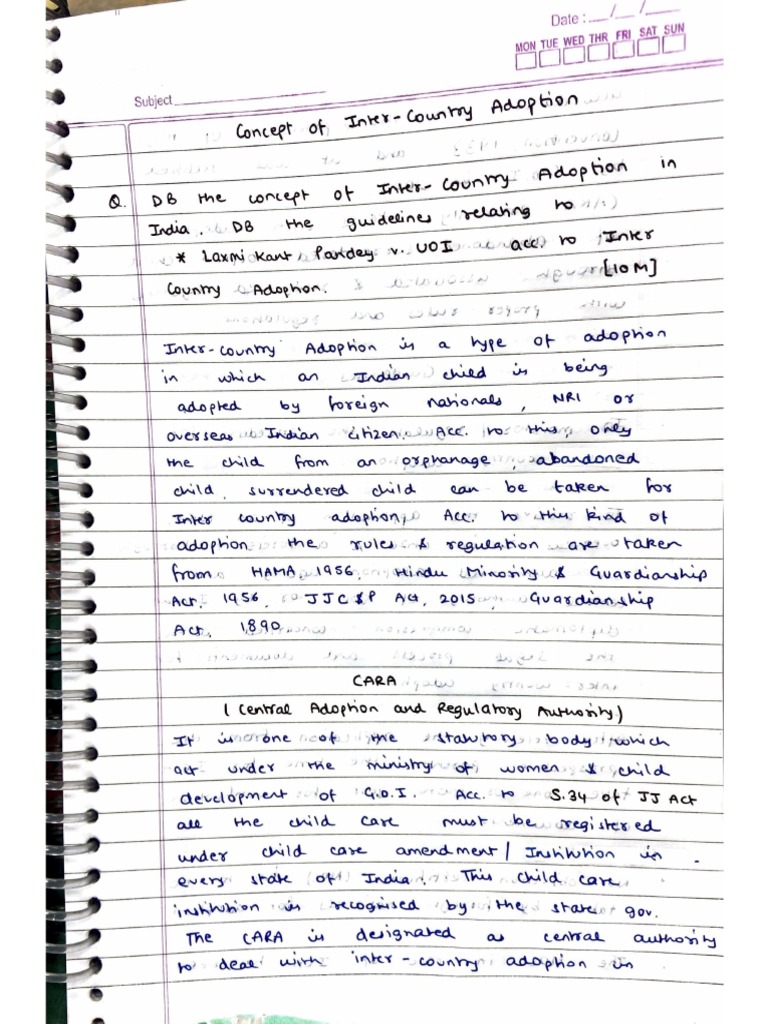 Date : __/__/__
MON TUE WED THR FRI SAT SUN
Subject
Concept of Inter-Country Adoption
Q. DB the concept of Inter-Country Adoption in
India. DB the guidelines relating to
* Laxmi Kant Pandey v. UOI acc. to Inter
Country Adoption. [10M]
Inter-country Adoption is a type of adoption
in which an Indian child is being
adopted by foreign nationals, NRI or
overseas Indian citizen. Acc. to this, only
the child from an orphanage, abandoned
child, surrendered child can be taken for
Inter country adoption, Acc. to this kind of
adoption the rules & regulation are taken
from HAMA 1956, Hindu Minority & Guardianship
Act, 1956, JJC&P Act, 2015, Guardianship
Act, 1890.
CARA
(Central Adoption and Regulatory Authority)
It is one of the statutory body which
act under the ministry of women & child
development of G.O.I. Acc. to S.34 of JJ Act
all the child care must be registered
under child care amendment / Institution in
every state of India. This child care
institution is recognised by the state gov.
The CARA is designated as central authority
to deal with inter-country adoption in